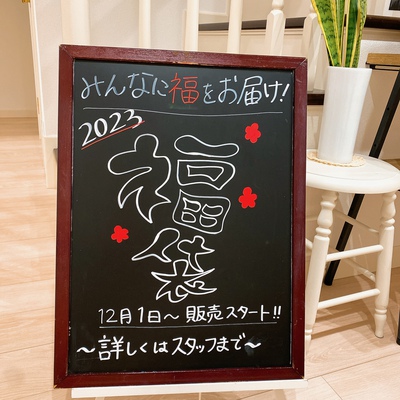 みんなに福をお届け!
2023
福袋
12月1日～ 販売スタート!!
～詳しくはスタッフまで～